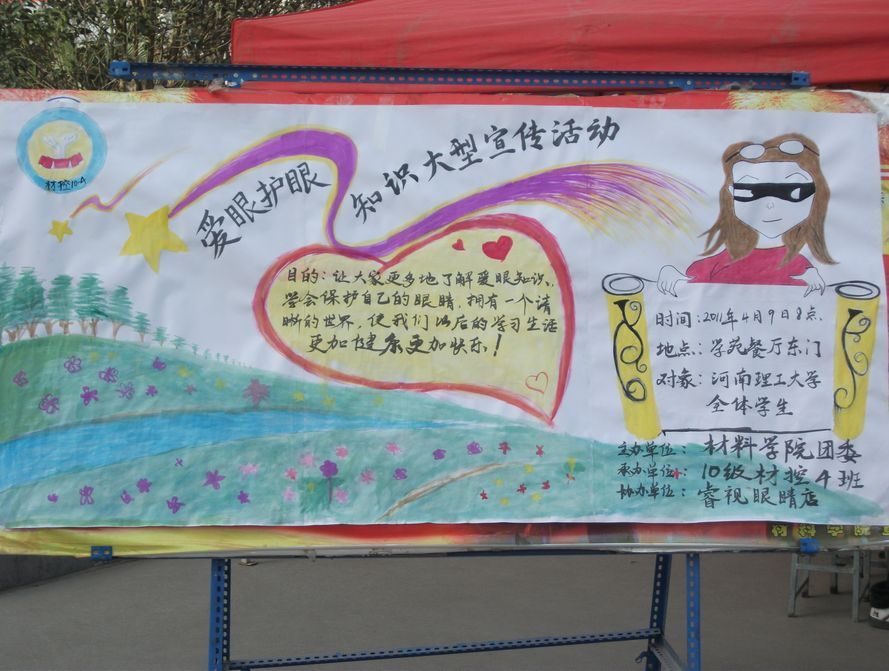 材控10-4
爱眼护眼 知识大型宣传活动
目的：让大家更多地了解爱眼知识，
学会保护自己的眼睛，拥有一个清
晰的世界，使我们以后的学习生活
更加健康更加快乐！
时间：2011年4月9日8点
地点：学苑餐厅东门
对象：河南理工大学
全体学生
主办单位：材料学院团委
承办单位：10级材控4班
协办单位：睿视眼睛店